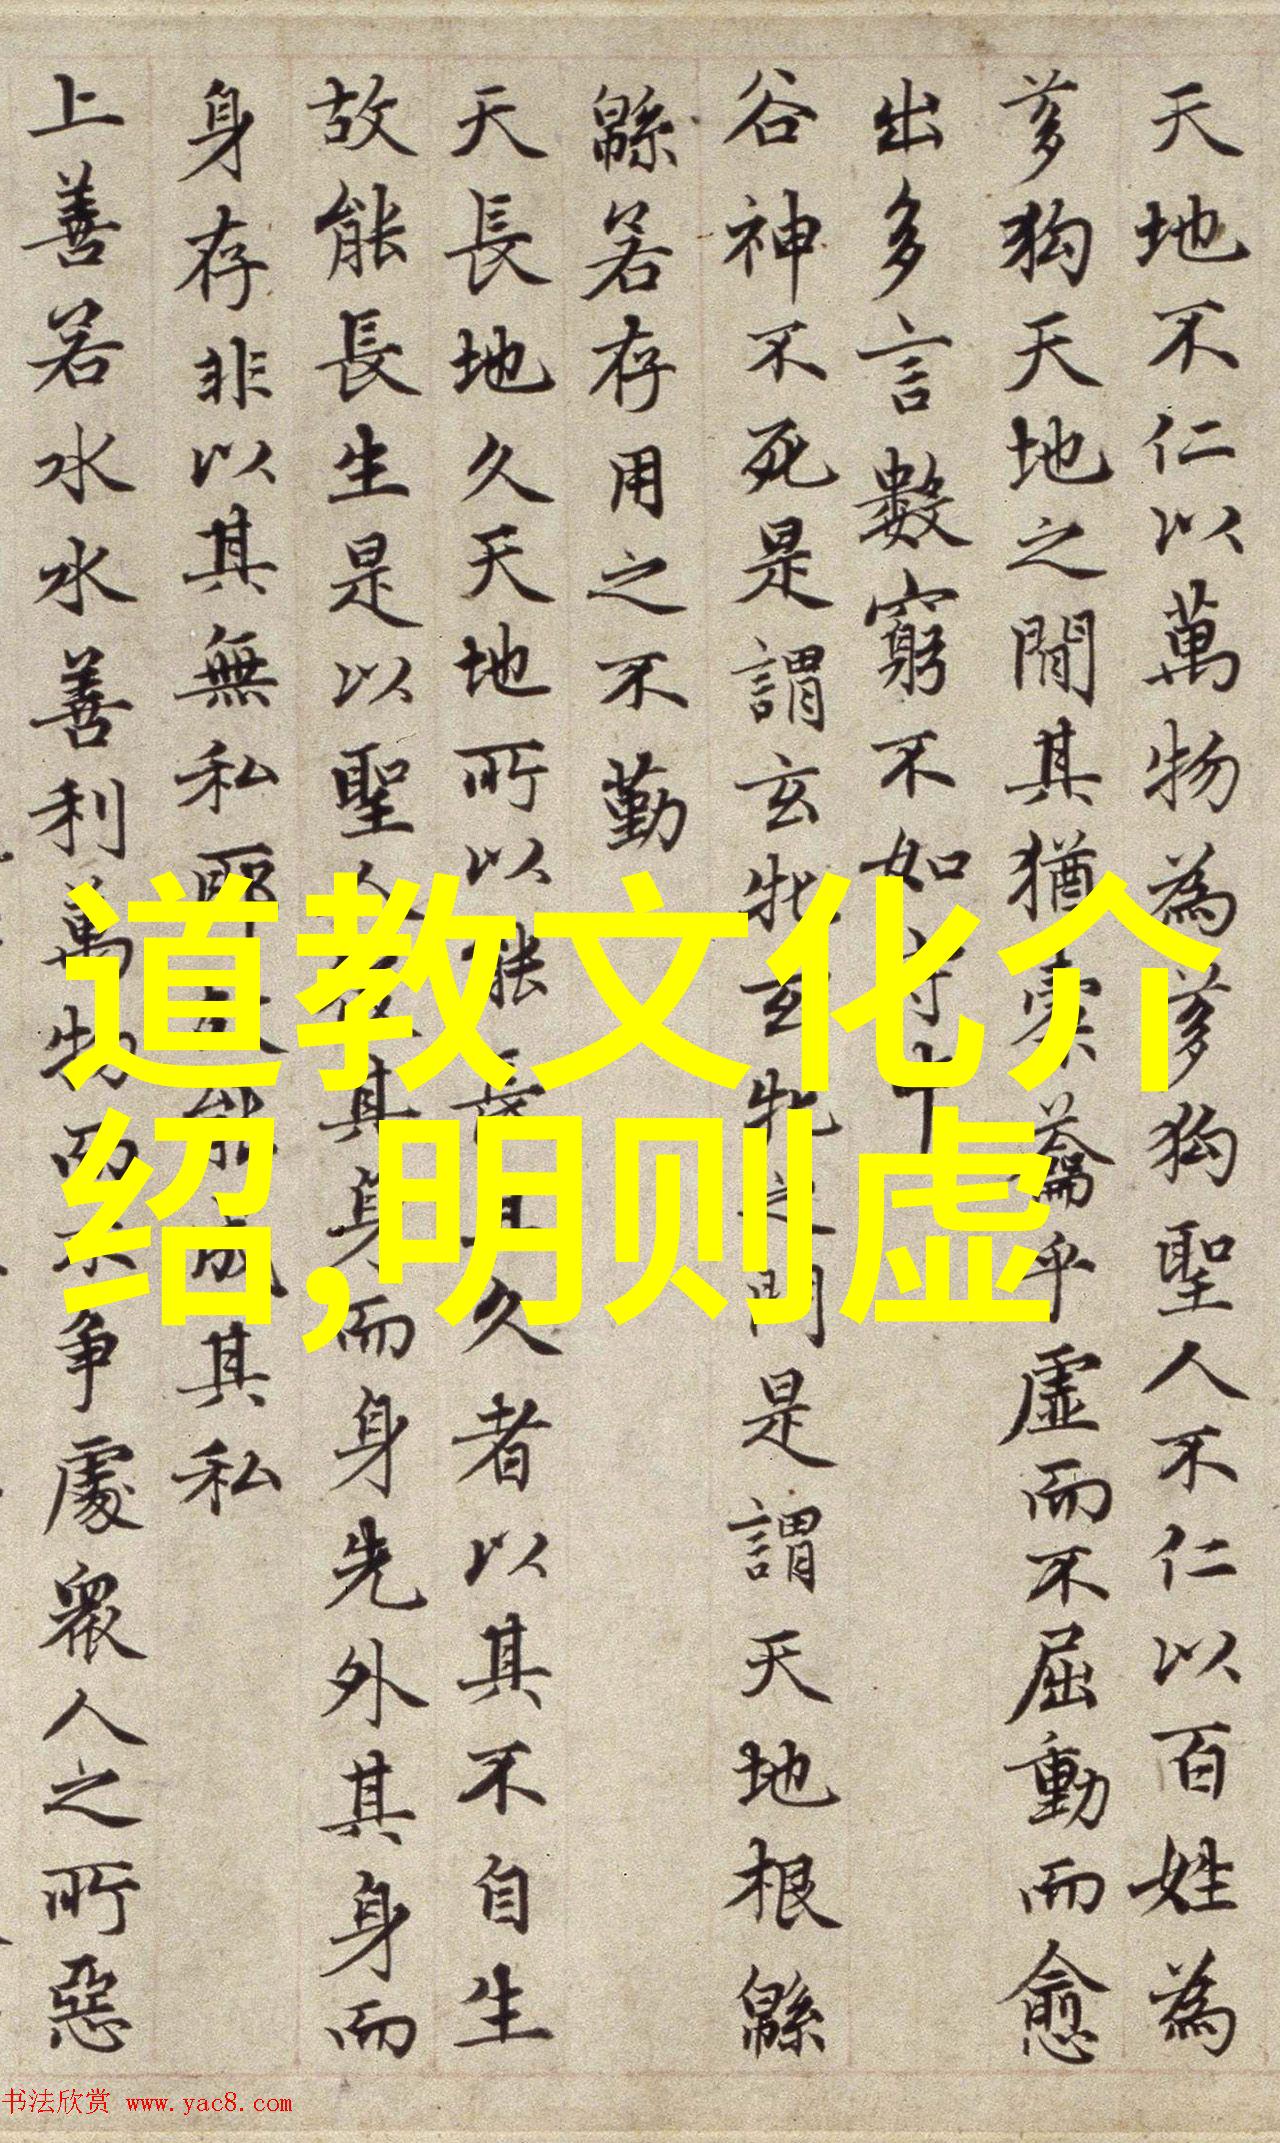 天地不仁以萬物為芻狗聖人不仁以百姓為
芻狗天地之間其猶橐籥乎虛而不屈動而愈
出多言數窮不如守中
谷神不死是謂玄牝玄牝之門是謂天地根緜
緜若存用之不勤
天長地久天地所以能長且久者以其不自生
故能長生是以聖人後其身而身先外其身而
身存非以其無私耶故能成其私
上善若水水善利萬物而不争處衆人之所惡
道教文化介
绍,明则虚
书法欣赏 www.yac8.com